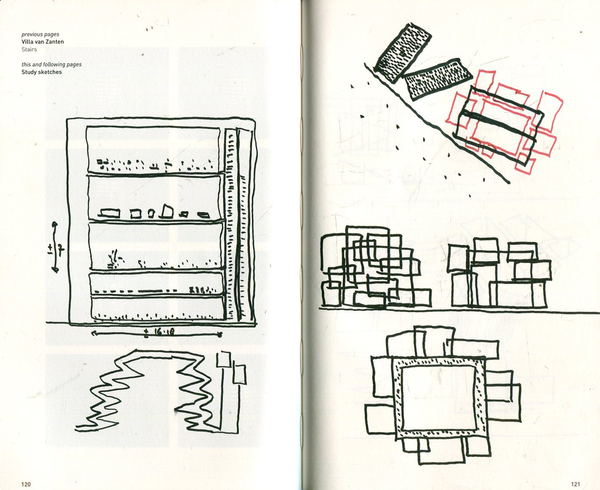 previous pages
Villa van Zanten
Stairs
this and following pages
Study sketches
± 16-18
120
121